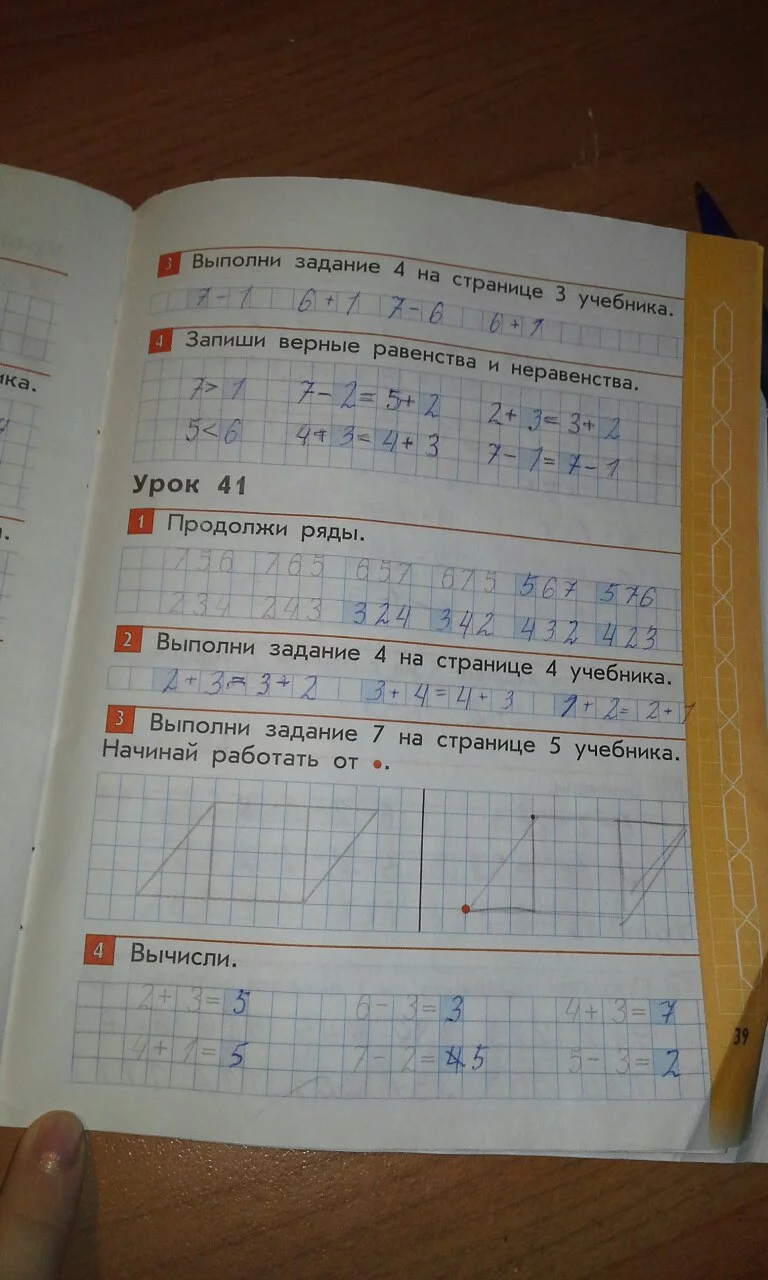 3 Выполни задание 4 на странице 3 учебника.
7-1 6+1 7-6 6+1
4 Запиши верные равенства и неравенства.
7>1 7-2=5+2 2+3=3+2
5<6 4+3=4+3 7-1=7-1
Урок 41
1 Продолжи ряды.
756 765 657 675 567 576
234 243 324 342 432 423
2 Выполни задание 4 на странице 4 учебника.
2+3=3+2 3+4=4+3 1+2=2+1
3 Выполни задание 7 на странице 5 учебника.
Начинай работать от
4 Вычисли.
2+3=5 6-3=3 4+3=7
4+1=5 7-2=45 5-3=2
39
ика.